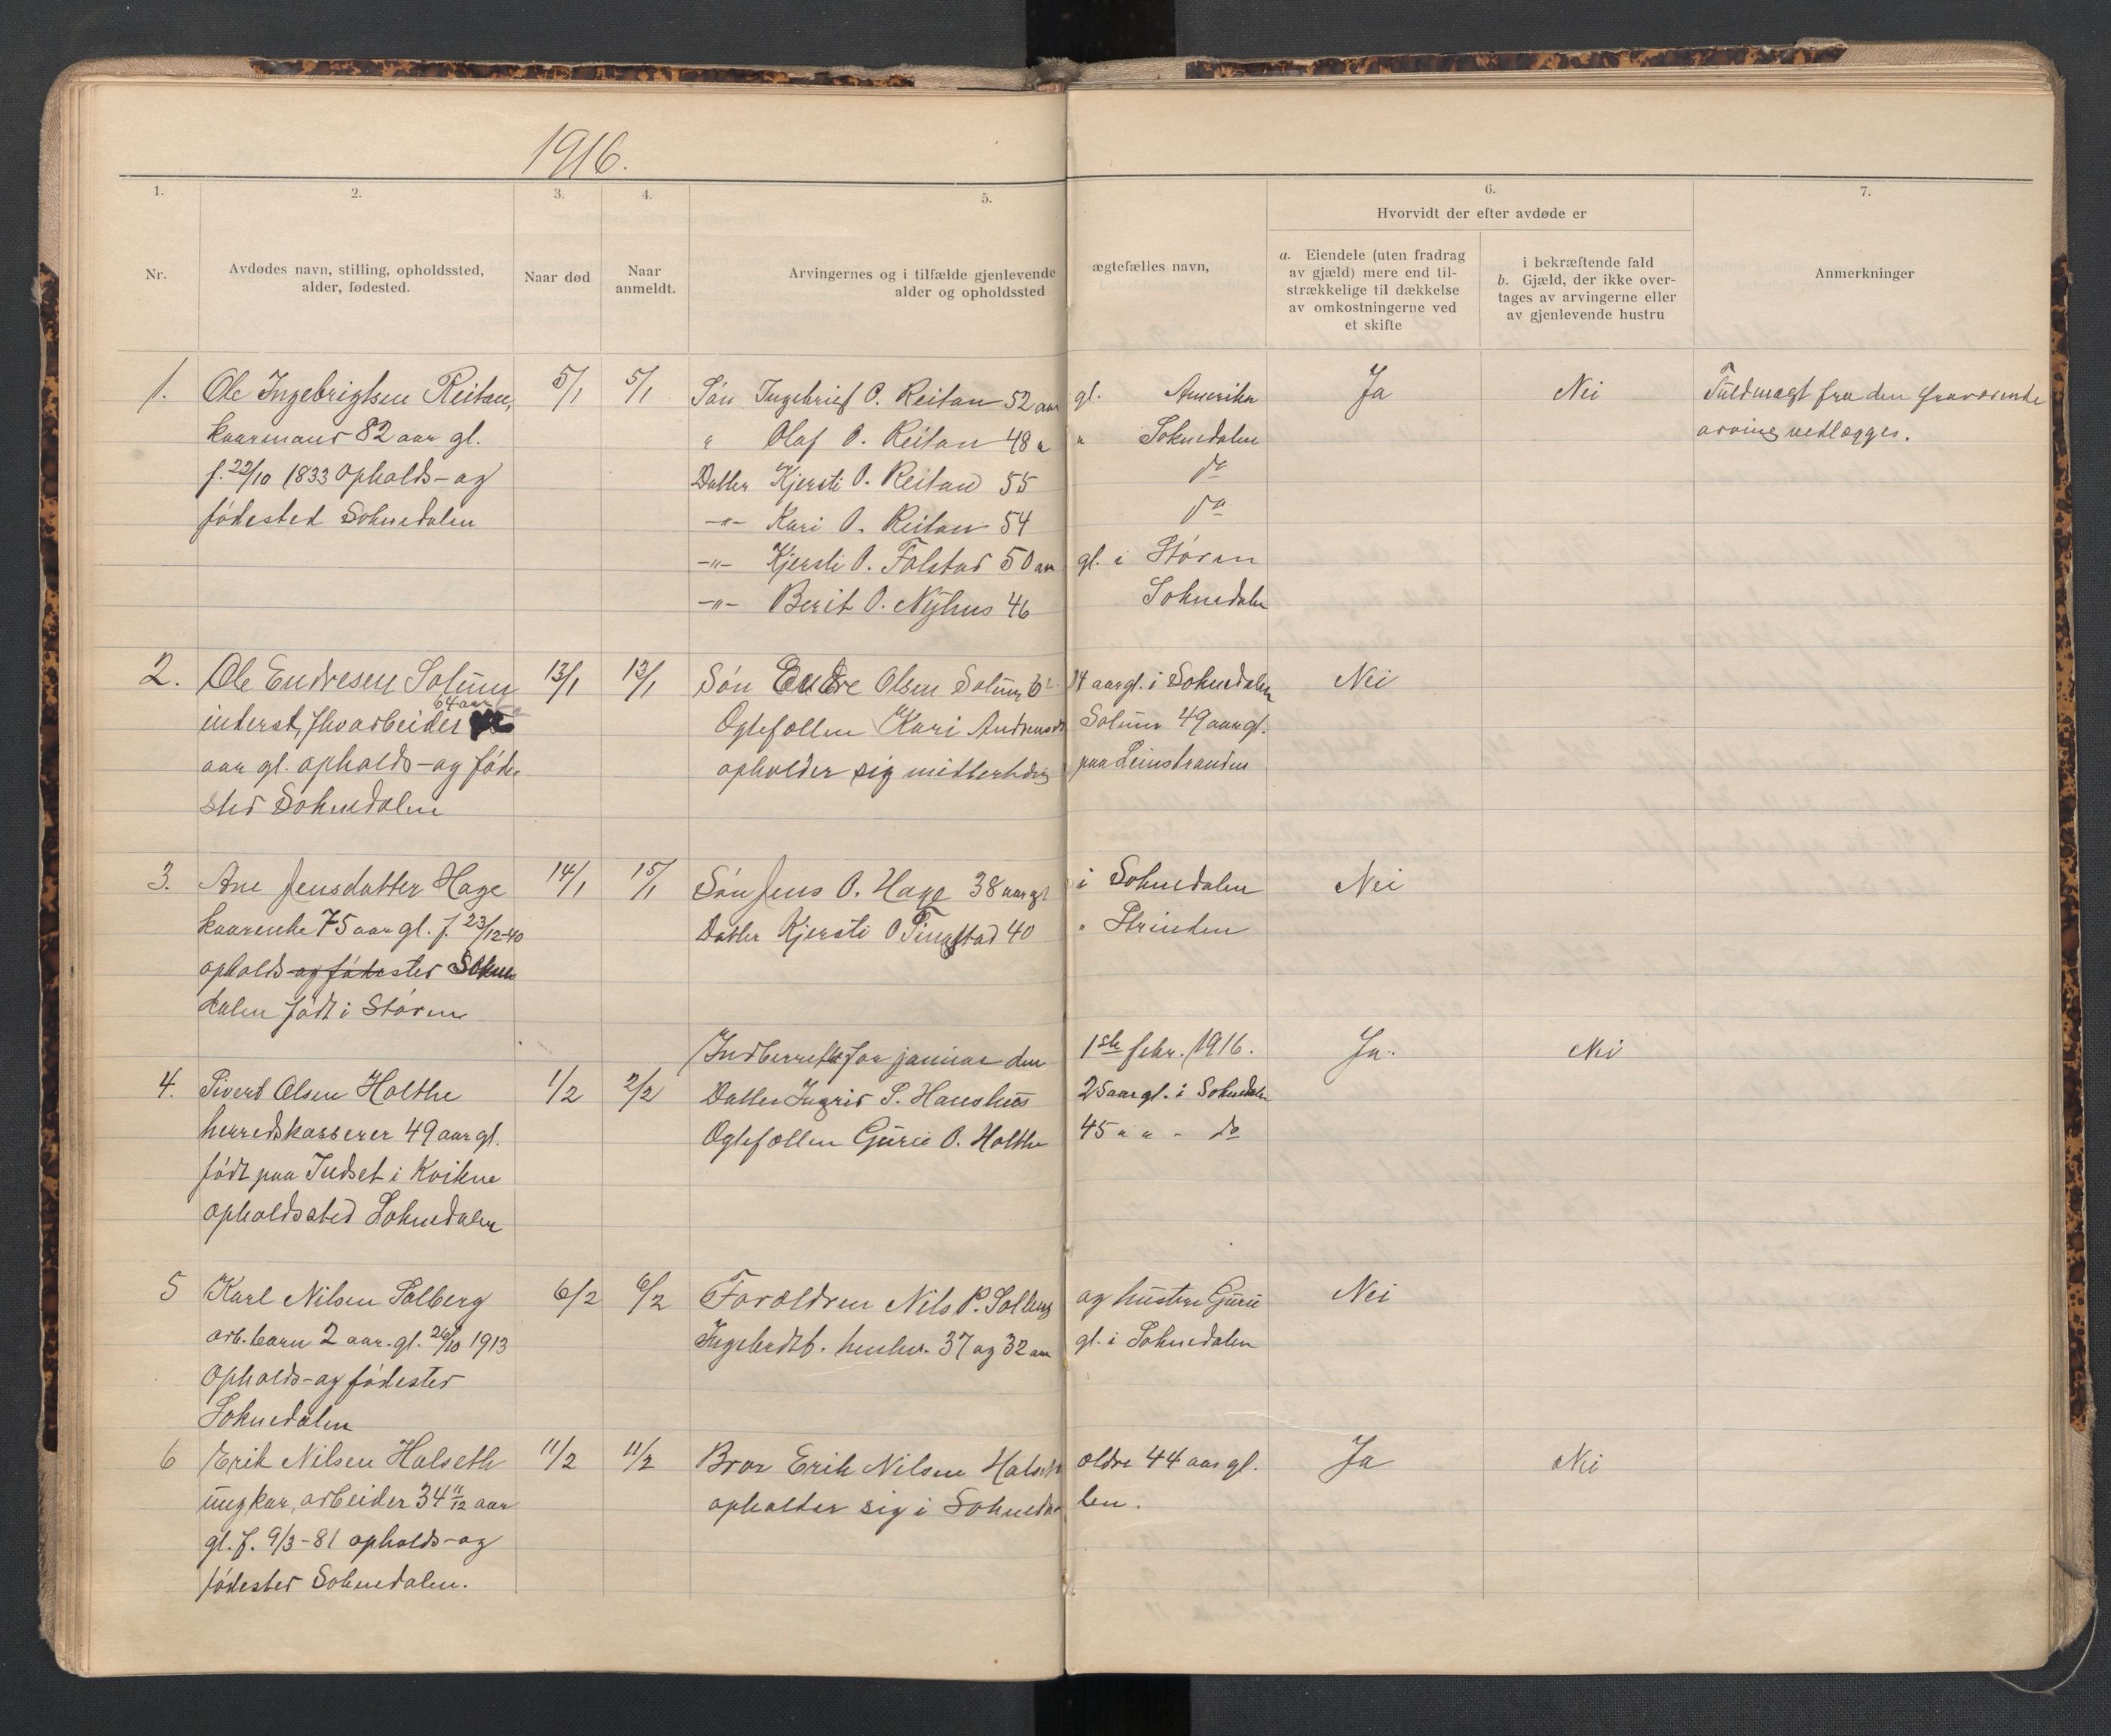 1916.
1. 2. 3. 4. 5. 6. 7.
Hvorvidt der efter avdøde er
Nr.
Avdødes navn, stilling, opholdssted,
alder, fødested.
Naar død
Naar
anmeldt.
Arvingernes og i tilfælde gjenlevende ægtefælles navn,
alder og opholdssted
a. Eiendele (uten fradrag
av gjæld) mere end til-
strækkelige til dækkelse
av omkostningerne ved
et skifte
i bekræftende fald
b. Gjæld, der ikke over-
tages av arvingerne eller
av gjenlevende hustru
Anmerkninger
1. Ole Ingebrigtsen Reitan, 5/1 5/1 Søn Ingebrigt O. Reitan 52 aar gl. Amerika Ja Nei Fuldmagt fra den fraværende
kaarmand 82 aar gl. " Olaf O. Reitan 48 " " Soknedalen arving vedlægges.
f. 22/10 1833 Opholds- og Datter Kjersti O. Reitan 55 do
fødested Soknedalen -"- Kari O. Reitan 54 do
-"- Kjersti O. Folstad 50 aar gl. i Støren
-"- Berit O. Nyhus 46 Soknedalen
2. Ole Endresen Solum 13/1 13/1 Søn Endre Olsen Solum 14 aar gl. i Soknedalen Nei
64 aar
inderst, arbeider Ægtefællen Kari Solum 49 aar gl.
aar gl. opholds- og føde- opholder sig midlertidig paa Leinstranden
sted Soknedalen
3. Ane Jensdatter Hage 14/1 15/1 Søn Jens O. Hage 38 aar gl i Soknedalen Nei
kaarenke 75 aar gl. f. 23/12-40 Datter Kjersti O 40 " Strinden
opholds og fødested Sokne
dalen født i Støren
Indberettet for januar den 1ste febr. 1916. Ja. Nei
4. Sivert Olsen Holthe 1/2 2/2 Datter Ingrid S. Haushus 25 aar gl. i Soknedalen
herredskasserer 49 aar gl. Ægtefællen Gurie O. Holthe 45 " " - do
født paa Indset i Kvikne
opholdssted Soknedalen
5 Karl Nilsen Solberg 6/2 6/2 Forældren Nils P. Solberg og hustru Gurie Nei
arb. barn 2 aar. gl. 26/10 1913 Ingebrdtt. 37 og 32 aar gl. i Soknedalen
Opholds- og fødested
Soknedalen
6 Erik Nilsen Halseth 11/2 11/2 Bror Erik Nilsen Halseth ældre 44 aar gl. Ja Nei
ungkar, arbeider 34 11/12 aar opholder sig i Soknedalen.
gl. f. 9/3-81 opholds- og
fødested Soknedalen.